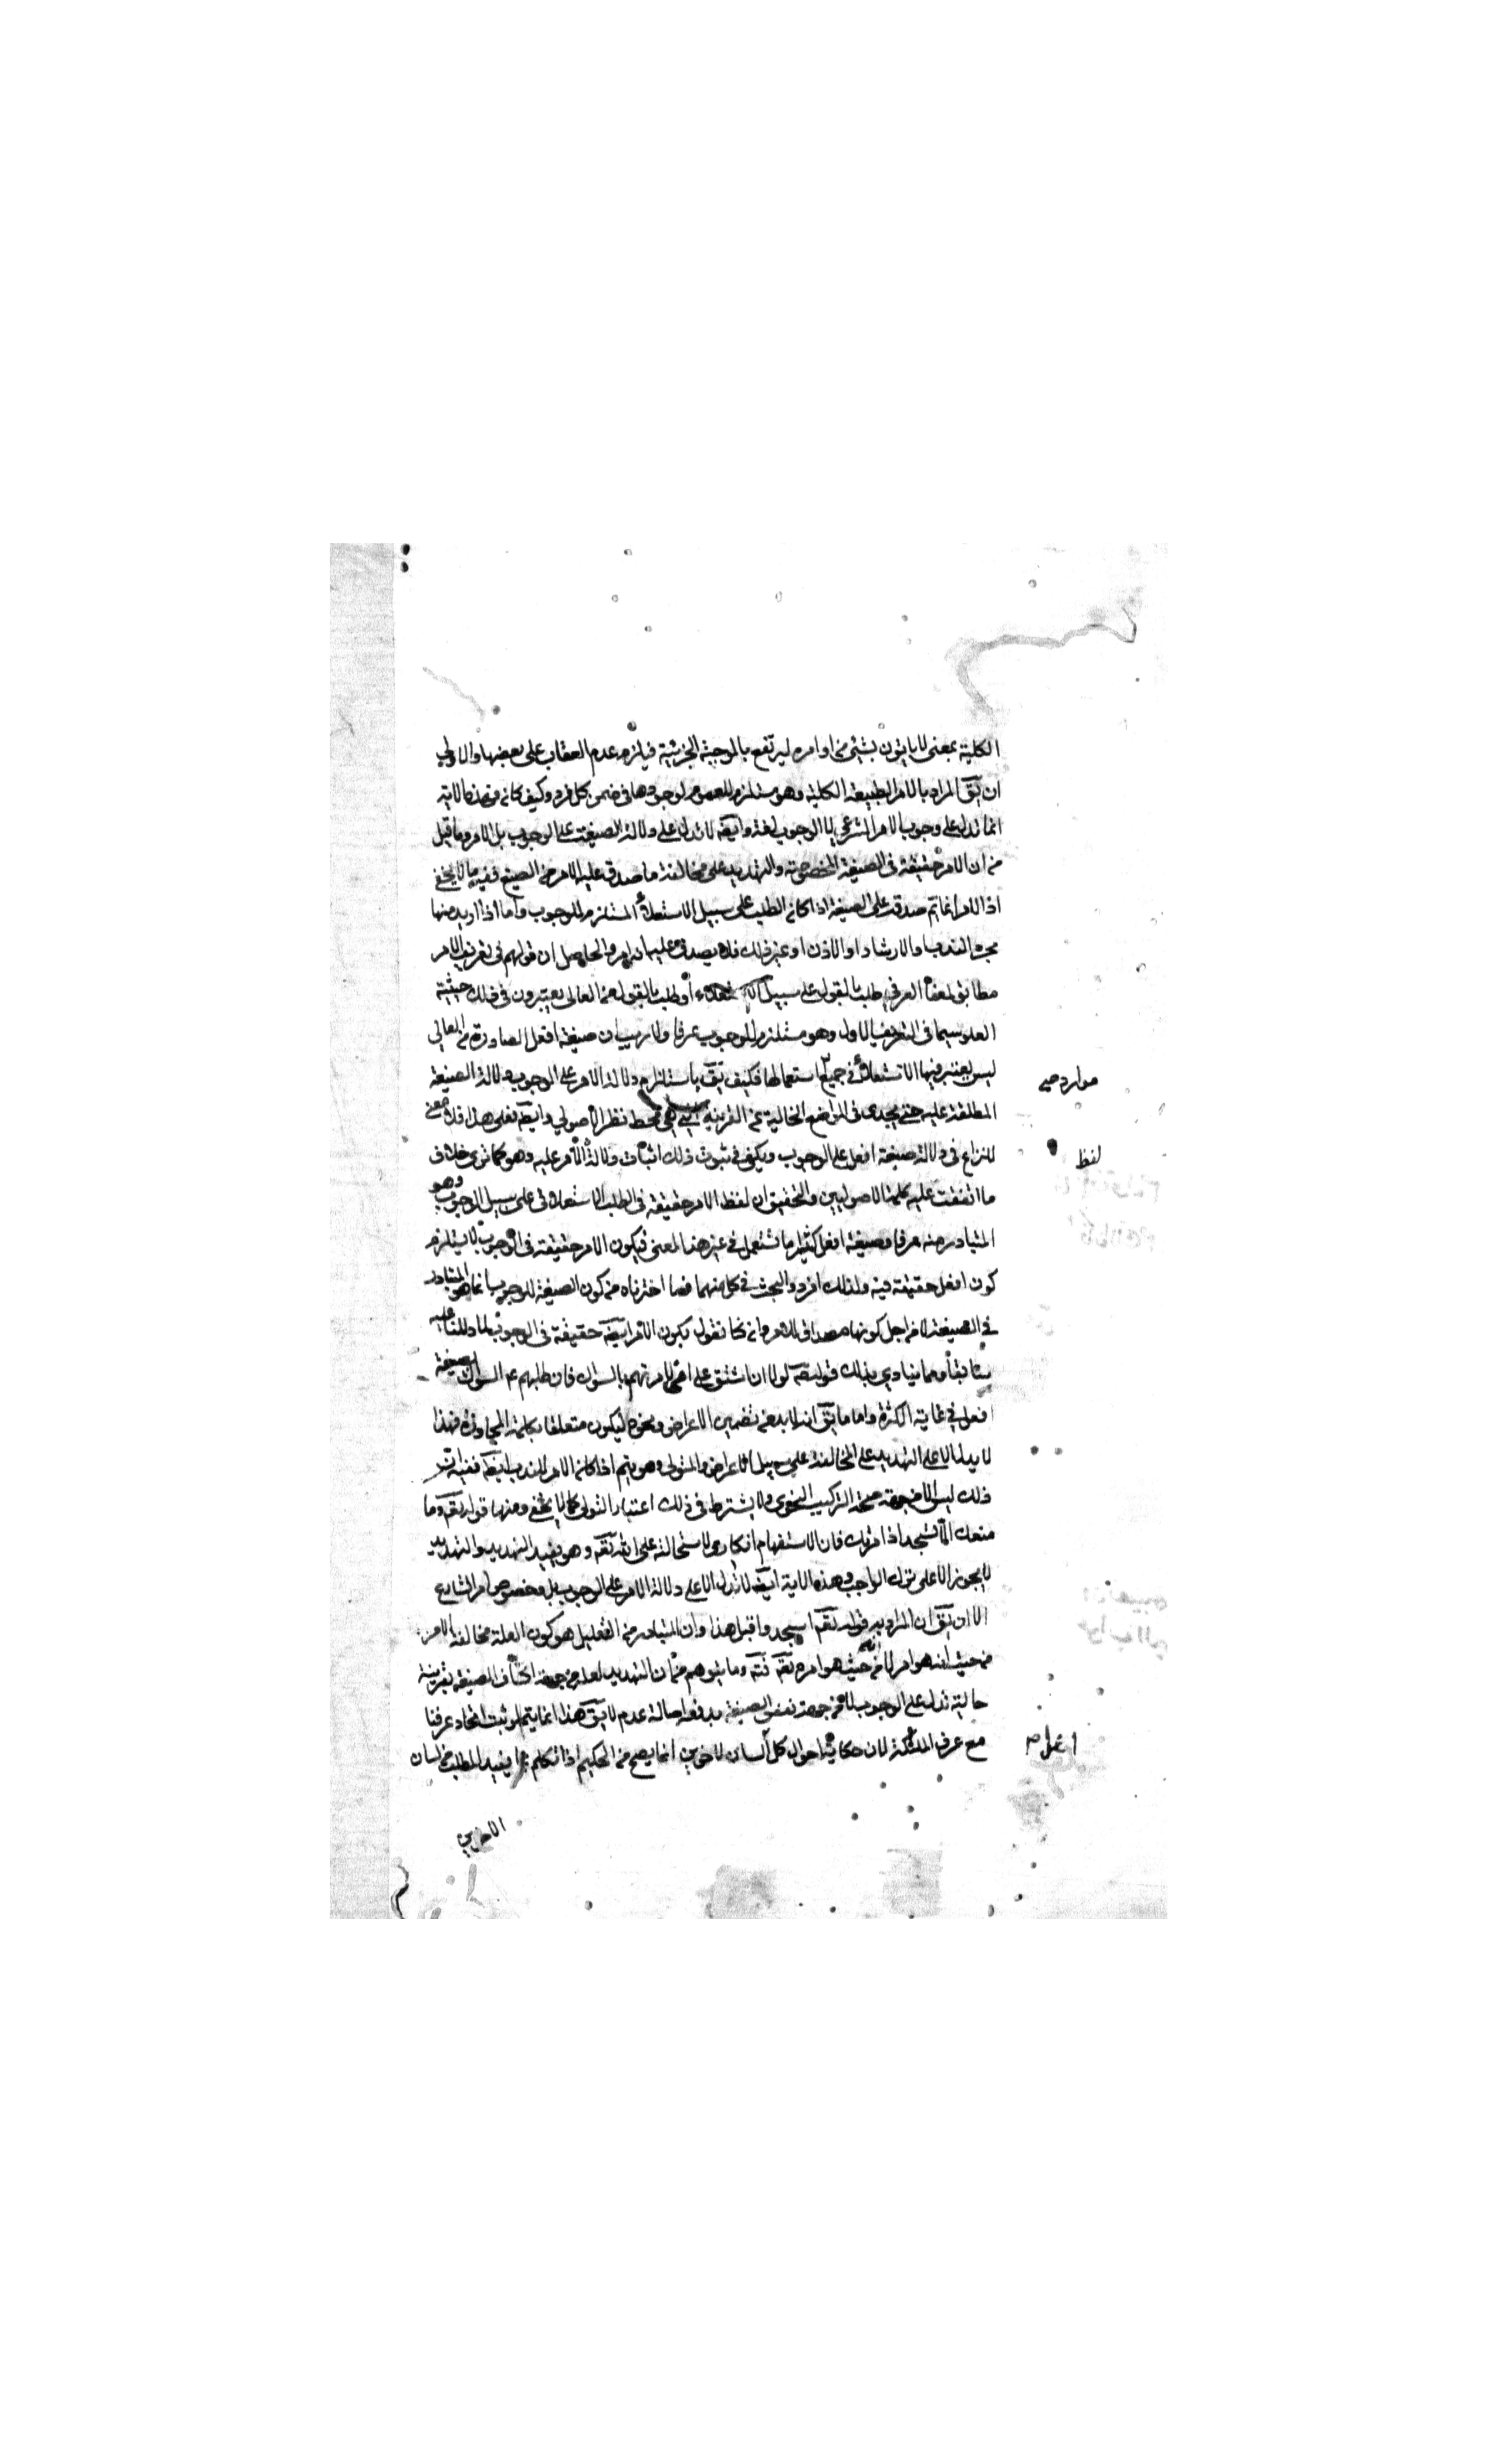 الكلية بمعنى لا ياتون بشيئ من اوامره ليرتفع بالموجبة الجزئية فيلزم عدم العقاب على بعضها والاولى
ان يق المراد بالامر الطبيعة الكلية وهو مستلزم للعموم لوجودها في ضمن كل فرد وكيف كان فهذه الاية
انما تدل على وجوب الامر الشرعي لا الوجوب لغة وايضه لا تدل على دلالة الصيغة على الوجوب بل الامر وما قيل
من ان الامر حقيقة في الصيغة المخصوصة والتهديد على مخالفة ما صدق عليه الامر من الصيغ ففيه ما لا يخفى
اذ الامر انما تم صدقه على الصيغة اذا كان الطلب على سبيل الاستعلاء المستلزم للوجوب واما اذا اريد منها
مجرد الندب والارشاد او الاذن او غير ذلك فلا يصدق عليها انه امر والحاصل ان قولهم في تعريف الامر
مطابق لمعناه العرفي طلب بالقول على سبيل الاستعلاء أو طلب بالقول من العالى يعتبرون في ذلك حيثية
العلو سيما في التعريف الاول وهو مستلزم للوجوب عرفا ولا ريب ان صيغة افعل الصادرة من العالي
ليس يعتبر فيها الاستعلاء في جميع استعمالها فكيف يق باستلزام دلالة الامر على الوجوب دلالة الصيغة
موارد صح
المطلقة عليه حتى يجدي في المواضع الخالية عن القرينة التي هي محط نظر الاصولي وايضه فعلى هذا فلا معنى
للنزاع في دلالة صيغة افعل على الوجوب ويكفي في ثبوت ذلك اثبات دلالة الأمر عليه وهو كما ترى خلاف
لفظ
ما اتفقت عليه كلمة الاصوليين والتحقيق ان لفظ الامر حقيقة في الطلب الاستعلائى على سبيل الوجوب وهو
المتبادر منه عرفا وصيغة افعل كثيرا ما تستعمل في غير هذا المعنى فيكون الامر حقيقة في الوجوب لا يستلزم
كون افعل حقيقة فيه ولذلك افردوا البحث في كل منهما فما اخترناه من كون الصيغة للوجوب انما هو المتبادر
في الصيغة لا من اجل كونها مصداق للامر وان كنا نقول بكون الأمر ايضه حقيقة في الوجوب لما دللنا عليه
سابقا ومما ينادي بذلك قوله ص لولا ان اشق على امتي لامرتهم بالسواك فان طلبهم عن السواك بصيغة
افعل في غاية الكثرة واما ما يق انه لا بد من تضمين الاعراض ونحوه ليكون متعلقا بكلمة المجاوزة فهذا
لا يدل الا على التهديد على المخالفة على سبيل الاعراض والتولى وهو يتم اذا كان الامر للندب ايضه ففيه ان
ذلك ليس الا من جهة صحة التركيب النحوى ولا يشترط في ذلك اعتبار التولي كما لا يخفى ومنها قوله تعه وما
منعك الا تسجد اذ امرتك فان الاستفهام انكارى لاستحالته على الله تعه وهو يفيد التهديد والتهديد
لا يجوز الا على ترك الواجب وهذه الاية ايضه لا تدل الا على دلالة الامر على الوجوب بل وخصوص امر الشارع
الا ان يق ان المراد به قوله تعه اسجدوا قبل هذا وان المتبادر من التعليل هو كون العلة مخالفة الامر
من حيث انه هو امر لا من حيث هو امره تعه وما يتوهم من ان التهديد لعله من جهة اكتناف الصيغة بقرينة
حالية تدل على الوجوب لا من جهة نفس الصيغة يدفعه اصالة عدم لا يق هذا انما يتم لو ثبت اتحاد عرفنا
مع عرف الملئكة لان حكاية احوال كل لسان لاخرين انما يصح من الحكيم اذا تكلم بما يفيد المطلب من لسان
الاخرين